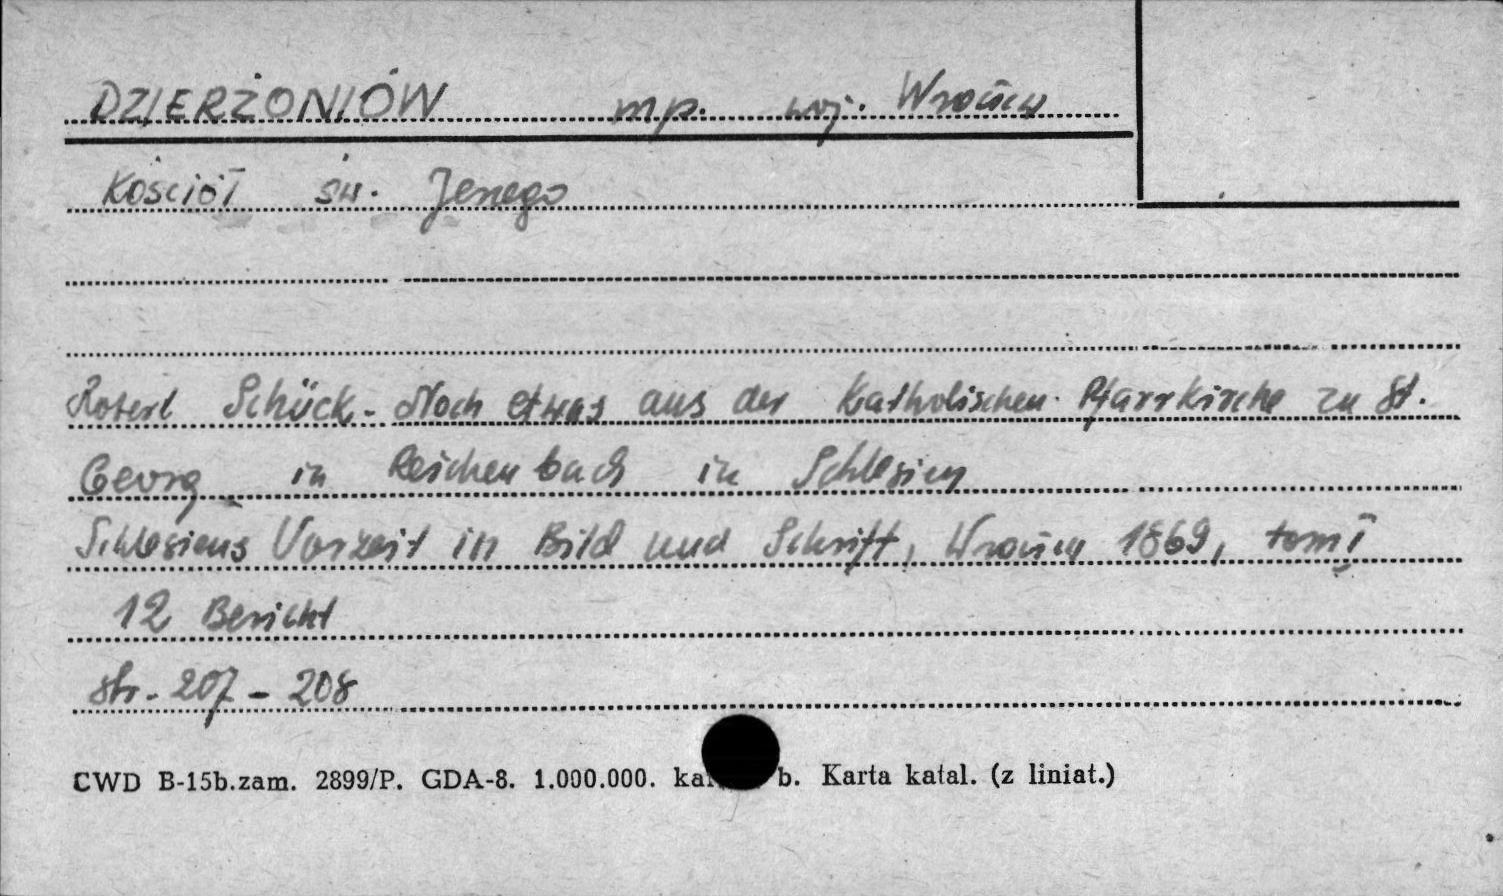 DZIERŻONIÓW mp. woj. Wrocław
Kościół św. Jerzego
Robert Schück - Noch etwas aus der Katholischen Pfarrkirche zu St.
Georg in Reichenbach in Schlesien
Schlesiens Vorzeit in Bild und Schrift, Wrocław 1869, tom I
12 Bericht
str. 207 - 208
CWD B-15b.zam. 2899/P. GDA-8. 1.000.000. b. Karta katal. (z liniat.)